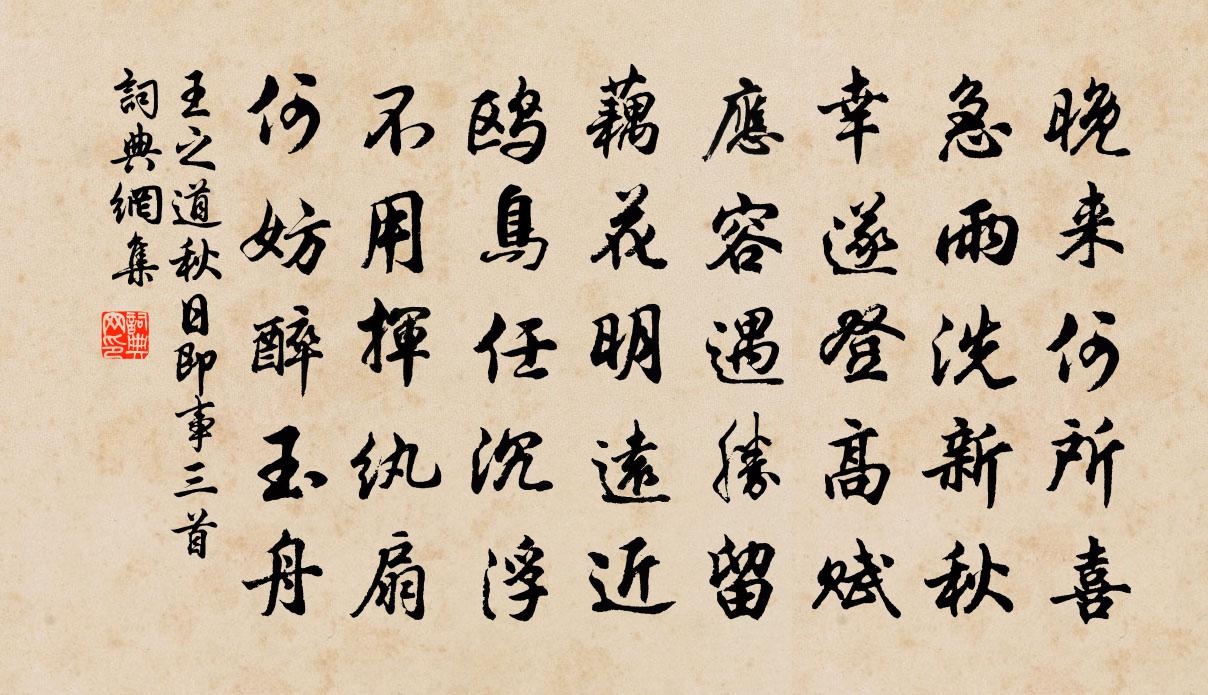 晚来何所喜
急雨洗新秋
幸遂登高赋
應容遇勝留
藕花明遠近
鸥鳥任沉浮
不用揮紈扇
何妨醉玉舟
王之道秋日即事三首
詞典網集
詞典网印